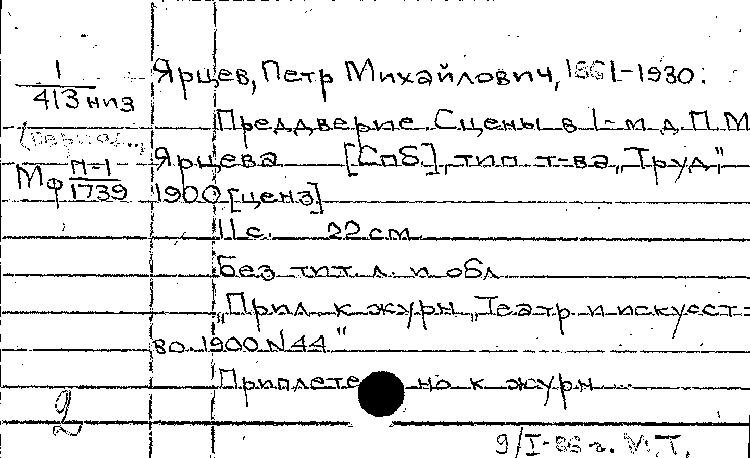 1
413 низ
Мф П-1
1739
Ярцев, Петр Михайлович, 1861-1930:
Преддверие. Сцены в 1-м д. П.М.
Ярцева [Спб], тип. т-ва „Труд"
1900 [ценз]
11 с. 22 см.
Без тит. л. и обл
„Прил. к журн. „Театр и искусст-
во. 1900. N 44"
Приплетено к журн
2
9/I-86 г.